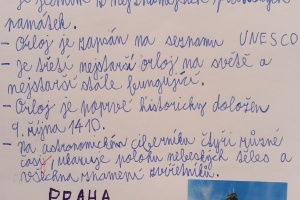 je jedním z nejznámějších pražských
památek.
- Orloj je zapsán na seznamu UNESCO
- Je třetí nejstarší orloj na světě a
nejstarší stále fungující.
- Orloj je poprvé historicky doložen
9. října 1410.
- Na astronomickém ciferníku čtyři různé
časy, ukazuje polohu nebeských těles a
všechna znamení zvěrokruhu.
PRAHA